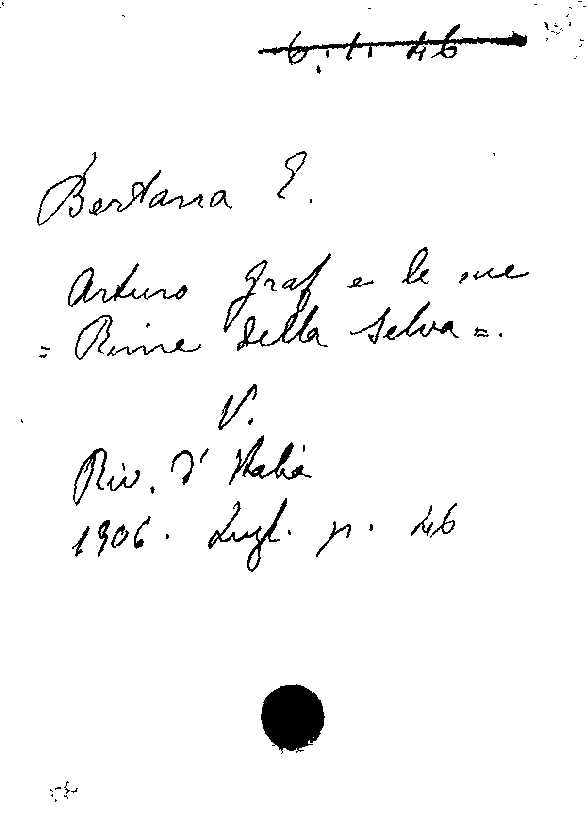 6.1.46
Bertana E.
Arturo Graf e le sue
= Rime della Selva =.
V.
Riv. d'Italia
1906. Lugl. p. 46